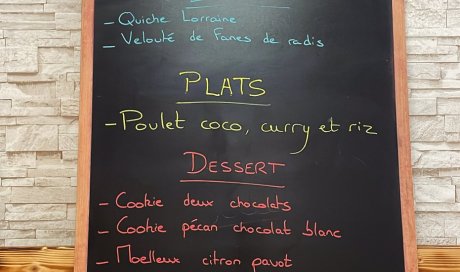 - Quiche Lorraine
- Velouté de fanes de radis
PLATS
- Poulet coco, curry et riz
DESSERT
- Cookie deux chocolats
- Cookie pécan chocolat blanc
- Moelleux citron pavot